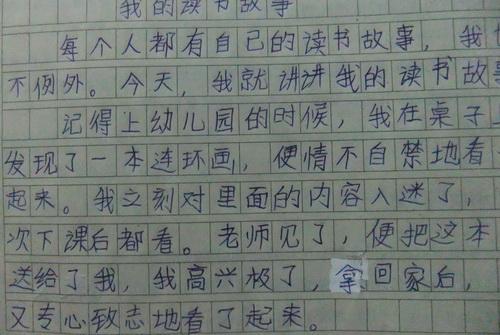 我的读书故事
每个人都有自己的读书故事，我
不例外。今天，我就讲讲我的读书故
记得上幼儿园的时候，我在桌子
发现了一本连环画，便情不自禁地看
起来。我立刻对里面的内容入迷了，
次下课后都看。老师见了，便把这本
送给了我，我高兴极了，拿回家后，
又专心致志地看了起来。